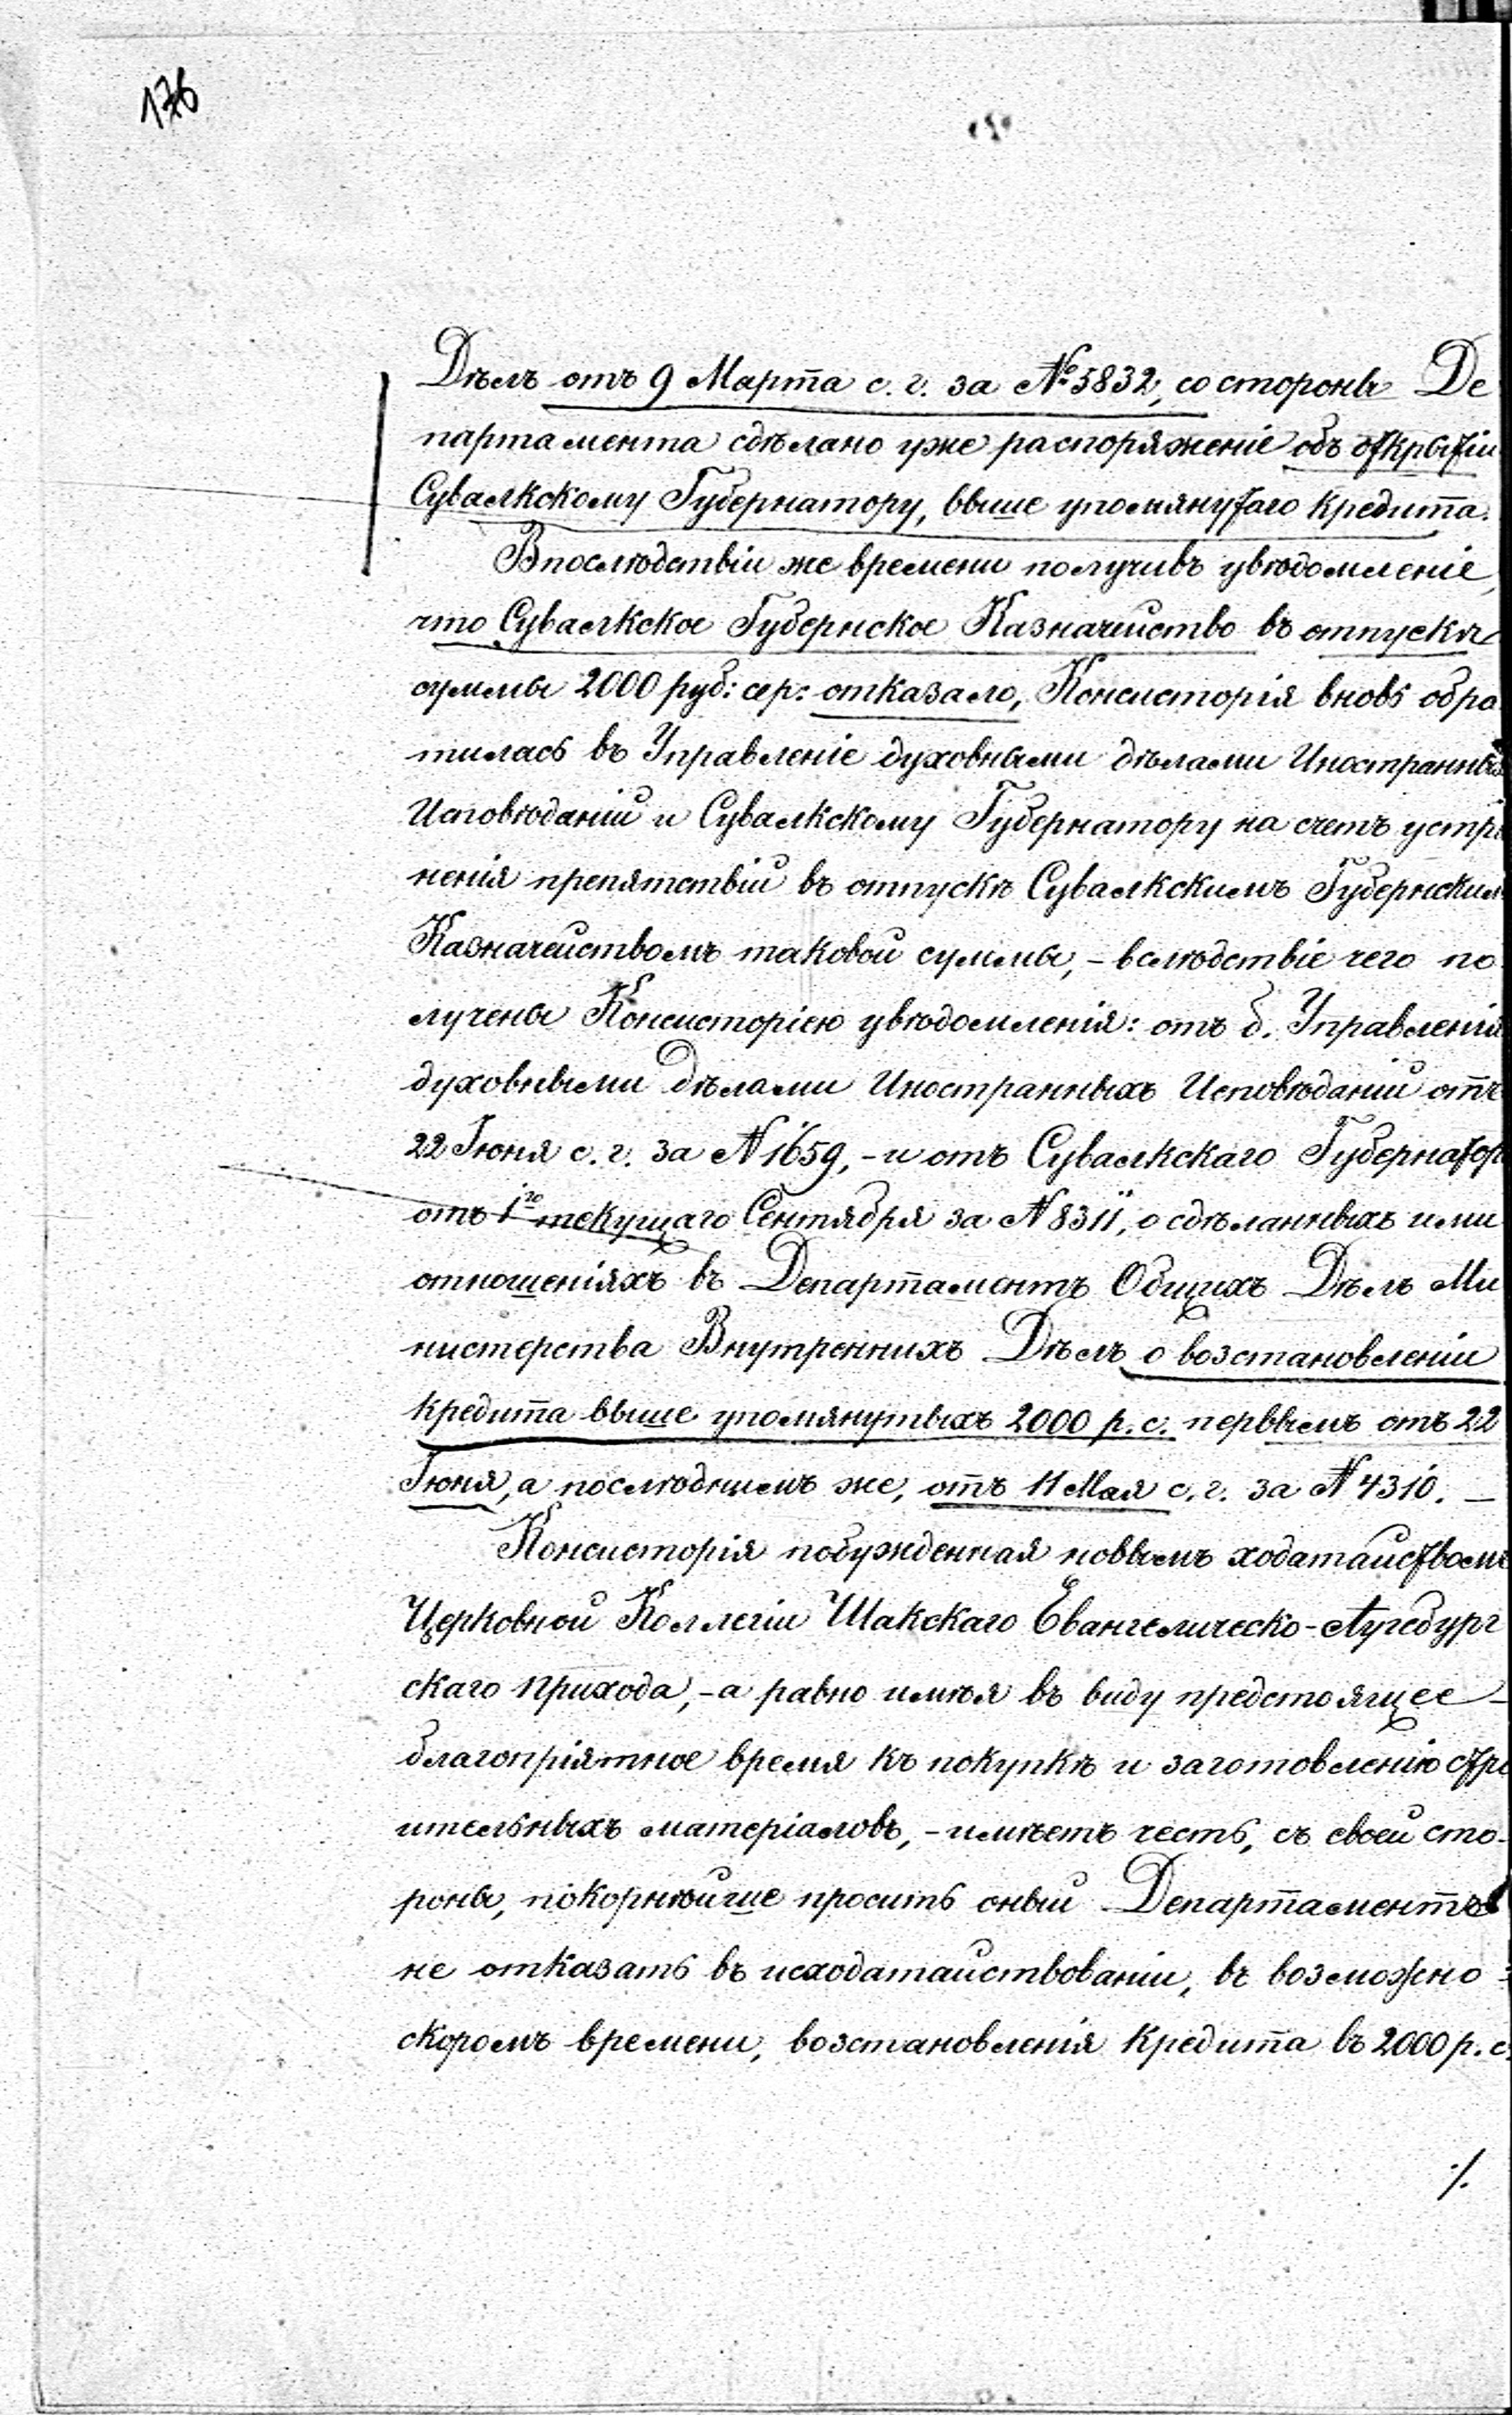 176
Дѣлъ отъ 9 Марта с. г. за №5832, со стороны Де
партамента сдѣлано уже распоряженіе объ открытіи
Сувалкскому Губернатору, выше упомянутаго кредита.
Впослѣдствіи же времени получивъ увѣдомленіе,
что Сувалкское Губернское Казначейство въ отпускѣ
суммы 2000 руб: сер: отказало, Консисторія вновь обра
тилась въ Управленіе духовными дѣлами Иностранныхъ
Исповѣданій и Сувалкскому Губернатору на счетъ устра
ненія препятствій въ отпускѣ Сувалкскимъ Губернским
Казначействомъ таковой суммы, - вслѣдствіе чего по
лучены Консисторіею увѣдомленія: отъ б. Управленія
духовными Дѣлами Иностранныхъ Исповѣданій отъ
22 Іюня с. г. за N 1659, - и отъ Сувалкскаго Губернатор
отъ 1го текущаго Сентября за N 8311, о сдѣланныхъ ими
отношеніяхъ въ Департаментъ Общихъ Дѣлъ Ми
нистерства Внутреннихъ Дѣлъ о возстановленіи
кредита выше упомянутыхъ 2000 р. с. первымъ отъ 22
Іюня, а послѣднимъ же, отъ 11 Мая с. г. за N 4310. —
Консисторія побужденная новымъ ходатайствомъ
Церковной Коллегіи Шакскаго Евангелическо-Аугсбург
скаго прихода, - а равно имѣя въ виду предстоящее -
благопріятное время къ покупкѣ и заготовленію стро
ительныхъ матеріаловъ, - имѣетъ честь, съ своей сто-
роны, покорнѣйше просить оный Департаментъ
не отказать въ исходатайствованіи, въ возможно =
скоромъ времени, возстановленія кредита въ 2000 р. с.
./.